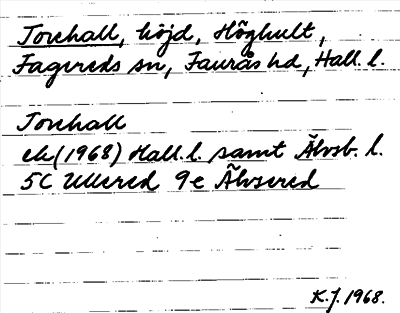 Torehall, höjd, Höghult,
Fagereds sn, Faurås hd, Hall. l.
Torehall
ek (1968) Hall. l. samt Älvsb. l.
5C Ullared 9e Älvsered
K.J. 1968.